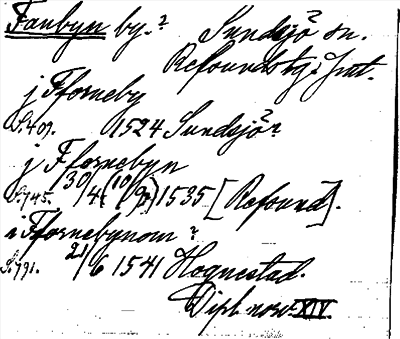 Faubyn by.? Sundsjö sn.
Refsundstg: Jmt.
j Fforneby
S. 409. 1524 Sundsjö?
j Ffornebyn
S. 745. 30/4 (10/9?) 1535 [Refsund].
i Ffornebynom?
S. 791. 21/6 1541 Hognestad.
Dipl. norv. XIV.